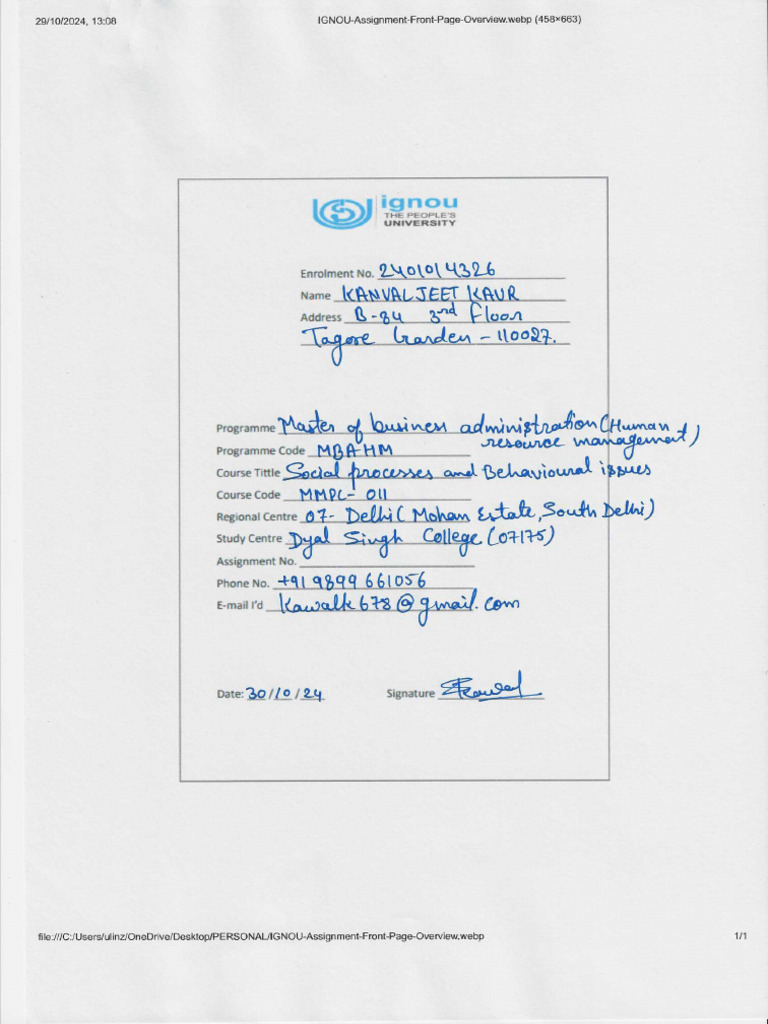 29/10/2024, 13:08 IGNOU-Assignment-Front-Page-Overview.webp (458×663)
ignou
THE PEOPLE'S
UNIVERSITY
Enrolment No. 2401014326
Name KANVALJEET KAUR
Address B-84 3rd Floor
Tagore Garden - 110027.
Programme Master of business administration (Human
resource management)
Programme Code MBAHM
Course Tittle Social processes and Behavioural issues
Course Code MMPC- 011
Regional Centre 07- Delhi ( Mohan Estate, South Delhi)
Study Centre Dyal Singh College (07175)
Assignment No.
Phone No. +91 9899 661056
E-mail I'd Kawalk678@gmail.com
Date: 30/10/24 Signature
file:///C:/Users/ulinz/OneDrive/Desktop/PERSONAL/IGNOU-Assignment-Front-Page-Overview.webp 1/1